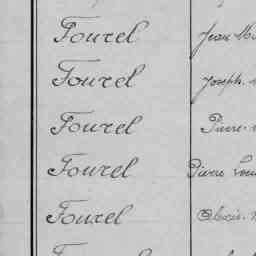 Fourel Jean
Fourel Joseph
Fourel Pierre
Fourel Pierre
Fourel Alexis